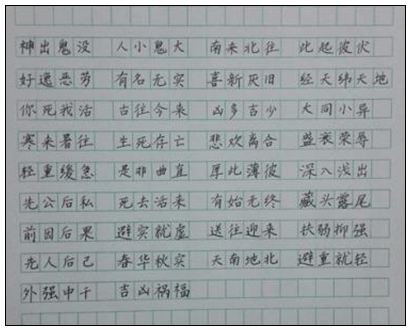 神出鬼没 人小鬼大 南来北往 此起彼伏
好逸恶劳 有名无实 喜新厌旧 经天纬天地
你死我活 古往今来 凶多吉少 大同小异
寒来暑往 生死存亡 悲欢离合 盛衰荣辱
轻重缓急 是非曲直 厚此薄彼 深入浅出
先公后私 死去活来 有始无终 藏头露尾
前因后果 避实就虚 送往迎来 扶弱抑强
先人后己 春华秋实 天南地北 避重就轻
外强中干 吉凶祸福